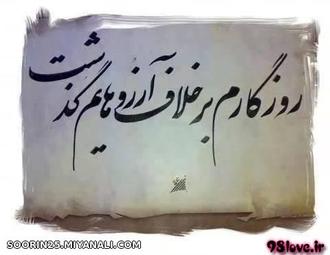 روزگارم بر خلاف آرزوهایم گذشت
SOORIN25.MIYANALI.COM
98love.ir